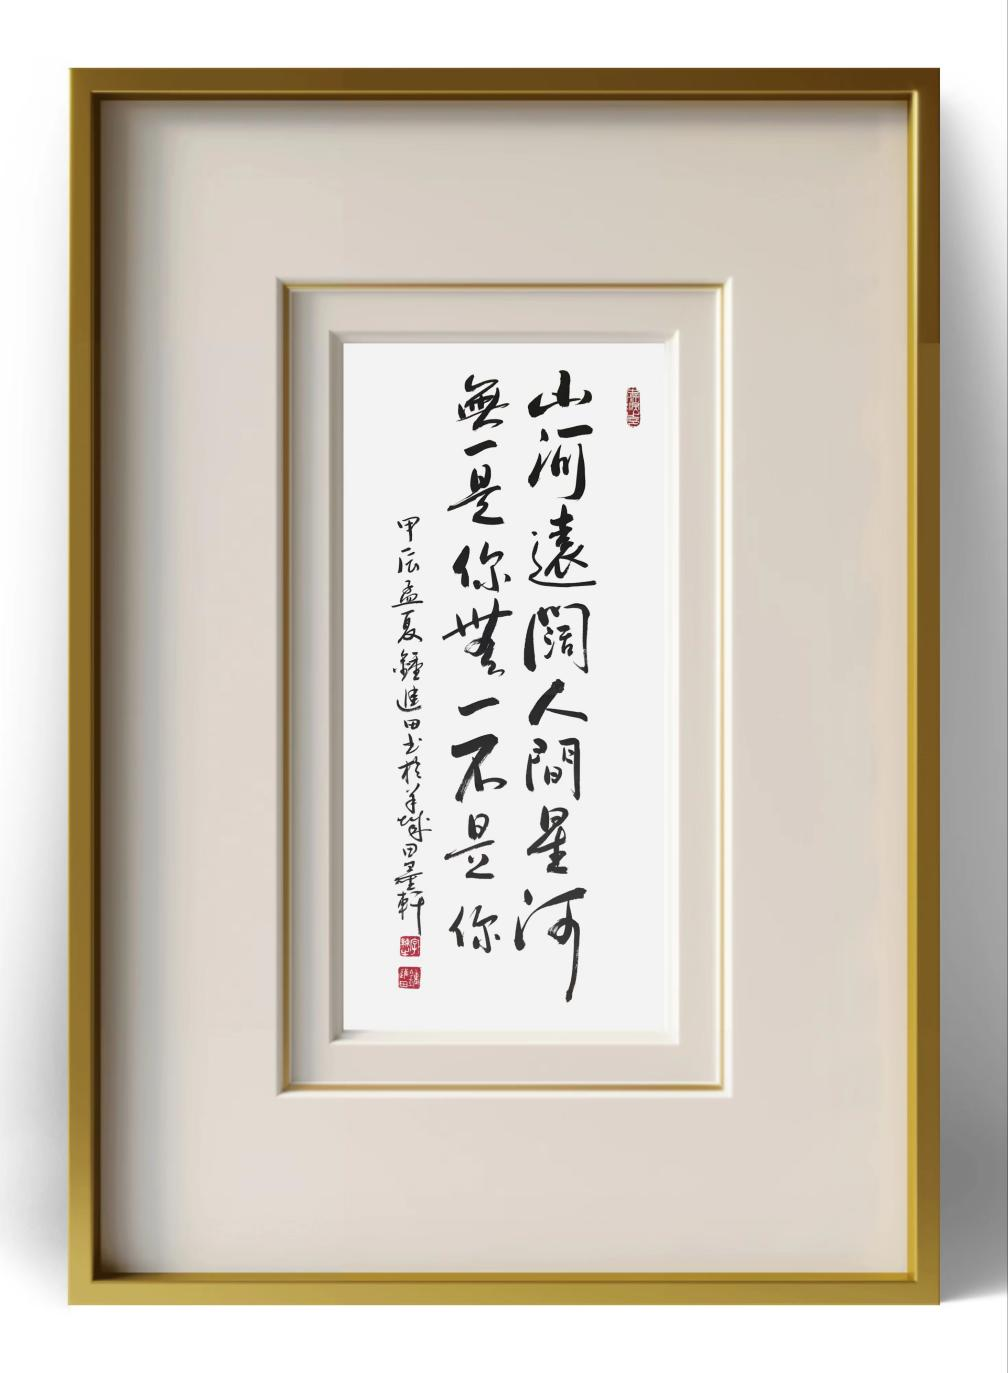 山河遠闊人間星河
無一是你無一不是你
甲辰孟夏鍾進田书於羊城田墨軒